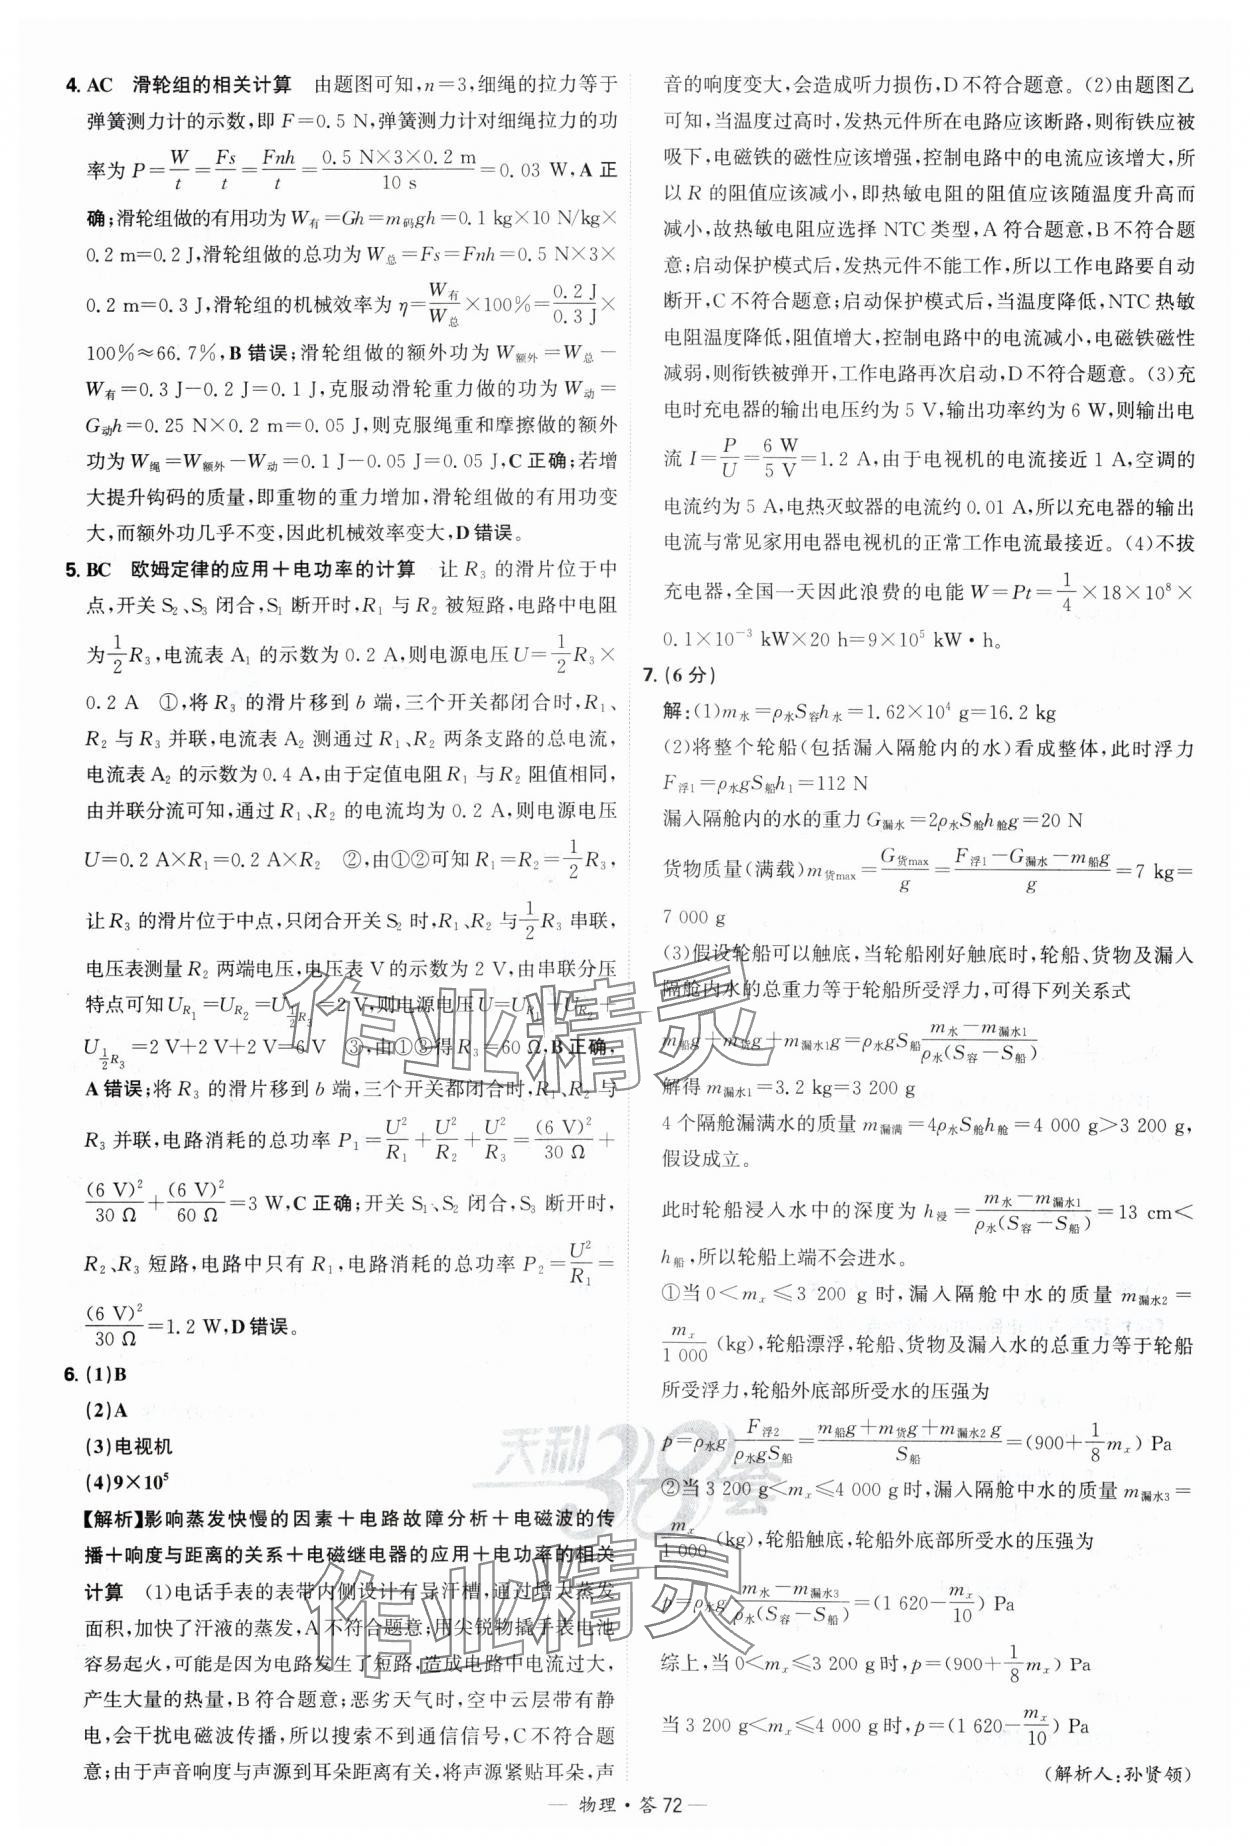 4. AC 滑轮组的相关计算 由题图可知,n=3,细绳的拉力等于
弹簧测力计的示数,即 F=0.5 N,弹簧测力计对细绳拉力的功
率为 P=W/t=Fs/t=Fnh/t=(0.5 N×3×0.2 m)/(10 s)=0.03 W,A 正
确;滑轮组做的有用功为 W有=Gh=m码gh=0.1 kg×10 N/kg×
0.2 m=0.2 J,滑轮组做的总功为 W总=Fs=Fnh=0.5 N×3×
0.2 m=0.3 J,滑轮组的机械效率为 η=W有/W总×100%=0.2 J/0.3 J×
100%≈66.7%,B 错误;滑轮组做的额外功为 W额外=W总-
W有=0.3 J-0.2 J=0.1 J,克服动滑轮重力做的功为 W动=
G动h=0.25 N×0.2 m=0.05 J,则克服绳重和摩擦做的额外
功为 W绳=W额外-W动=0.1 J-0.05 J=0.05 J,C 正确;若增
大提升钩码的质量,即重物的重力增加,滑轮组做的有用功变
大,而额外功几乎不变,因此机械效率变大,D 错误。
5. BC 欧姆定律的应用+电功率的计算 让 R₃ 的滑片位于中
点,开关 S₂、S₃ 闭合,S₁ 断开时,R₁ 与 R₂ 被短路,电路中电阻
为1/2R₃,电流表 A₁ 的示数为 0.2 A,则电源电压 U=1/2R₃×
0.2 A ①,将 R₃ 的滑片移到 b 端,三个开关都闭合时,R₁、
R₂ 与 R₃ 并联,电流表 A₂ 测通过 R₁、R₂ 两条支路的总电流,
电流表 A₂ 的示数为 0.4 A,由于定值电阻 R₁ 与 R₂ 阻值相同,
由并联分流可知,通过 R₁、R₂ 的电流均为 0.2 A,则电源电压
U=0.2 A×R₁=0.2 A×R₂ ②,由①②可知 R₁=R₂=1/2R₃,
让 R₃ 的滑片位于中点,只闭合开关 S₂ 时,R₁、R₂ 与1/2R₃ 串联,
电压表测量 R₂ 两端电压,电压表 V 的示数为 2 V,由串联分压
特点可知 U_R₁=U_R₂=U_1/2R₃=2 V,则电源电压 U=U_R₁+U_R₂+
U_1/2R₃=2 V+2 V+2 V=6 V ③,由①③得 R₃=60 Ω,B 正确,
A 错误;将 R₃ 的滑片移到 b 端,三个开关都闭合时,R₁、R₂ 与
R₃ 并联,电路消耗的总功率 P₁=U²/R₁+U²/R₂+U²/R₃=(6 V)²/30 Ω+
(6 V)²/30 Ω+(6 V)²/60 Ω=3 W,C 正确;开关 S₁、S₂ 闭合,S₃ 断开时,
R₂、R₃ 短路,电路中只有 R₁,电路消耗的总功率 P₂=U²/R₁=
(6 V)²/30 Ω=1.2 W,D 错误。
6. (1)B
(2)A
(3)电视机
(4)9×10⁵
【解析】影响蒸发快慢的因素+电路故障分析+电磁波的传
播+响度与距离的关系+电磁继电器的应用+电功率的相关
计算 (1)电话手表的表带内侧设计有导汗槽,通过增大蒸发
面积,加快了汗液的蒸发,A 不符合题意;用尖锐物撬手表电池
容易起火,可能是因为电路发生了短路,造成电路中电流过大,
产生大量的热量,B 符合题意;恶劣天气时,空中云层带有静
电,会干扰电磁波传播,所以搜索不到通信信号,C 不符合题
意;由于声音响度与声源到耳朵距离有关,将声源紧贴耳朵,声
音的响度变大,会造成听力损伤,D 不符合题意。(2)由题图乙
可知,当温度过高时,发热元件所在电路应该断路,则衔铁应被
吸下,电磁铁的磁性应该增强,控制电路中的电流应该增大,所
以 R 的阻值应该减小,即热敏电阻的阻值应该随温度升高而
减小,故热敏电阻应选择 NTC 类型,A 符合题意,B 不符合题
意;启动保护模式后,发热元件不能工作,所以工作电路要自动
断开,C 不符合题意;启动保护模式后,当温度降低,NTC 热敏
电阻温度降低,阻值增大,控制电路中的电流减小,电磁铁磁性
减弱,则衔铁被弹开,工作电路再次启动,D 不符合题意。(3)充
电时充电器的输出电压约为 5 V,输出功率约为 6 W,则输出电
流 I=P/U=6 W/5 V=1.2 A,由于电视机的电流接近 1 A,空调的
电流约为 5 A,电热灭蚊器的电流约为 0.01 A,所以充电器的输出
电流与常见家用电器电视机的正常工作电流最接近。(4)不拔
充电器,全国一天因此浪费的电能 W=Pt=1/4×18×10⁸×
0.1×10⁻³ kW×20 h=9×10⁵ kW·h。
7. (6 分)
解:(1)m水=ρ水S容h水=1.62×10⁴ g=16.2 kg
(2)将整个轮船(包括漏入隔舱内的水)看成整体,此时浮力
F浮1=ρ水gS船h1=112 N
漏入隔舱内的水的重力 G漏水=2ρ水S舱h舱g=20 N
货物质量(满载)m货max=G货max/g=(F浮1-G漏水-m船g)/g=7 kg=
7 000 g
(3)假设轮船可以触底,当轮船刚好触底时,轮船、货物及漏入
隔舱内水的总重力等于轮船所受浮力,可得下列关系式
m船g+m货g+m漏水1g=ρ水gS船(m水-m漏水1)/(ρ水(S容-S船))
解得 m漏水1=3.2 kg=3 200 g
4 个隔舱漏满水的质量 m漏满=4ρ水S舱h舱=4 000 g>3 200 g,
假设成立。
此时轮船浸入水中的深度为 h浸=(m水-m漏水1)/(ρ水(S容-S船))=13 cm<
h船,所以轮船上端不会进水。
①当 0<mₓ≤3 200 g 时,漏入隔舱中水的质量 m漏水2=
mₓ/1 000 (kg),轮船漂浮,轮船、货物及漏入水的总重力等于轮船
所受浮力,轮船外底部所受水的压强为
p=ρ水g F浮2/(ρ水gS船)=(m船g+m货g+m漏水2g)/S船=(900+1/8mₓ) Pa
②当 3 200 g<mₓ≤4 000 g 时,漏入隔舱中水的质量 m漏水3=
mₓ/1 000 (kg),轮船触底,轮船外底部所受水的压强为
p=ρ水g (m水-m漏水3)/(ρ水(S容-S船))=(1 620-mₓ/10) Pa
综上,当 0<mₓ≤3 200 g 时,p=(900+1/8mₓ) Pa
当 3 200 g<mₓ≤4 000 g 时,p=(1 620-mₓ/10) Pa
(解析人:孙贤领)
— 物理·答 72 —
作业精灵
天利38套
作业精灵